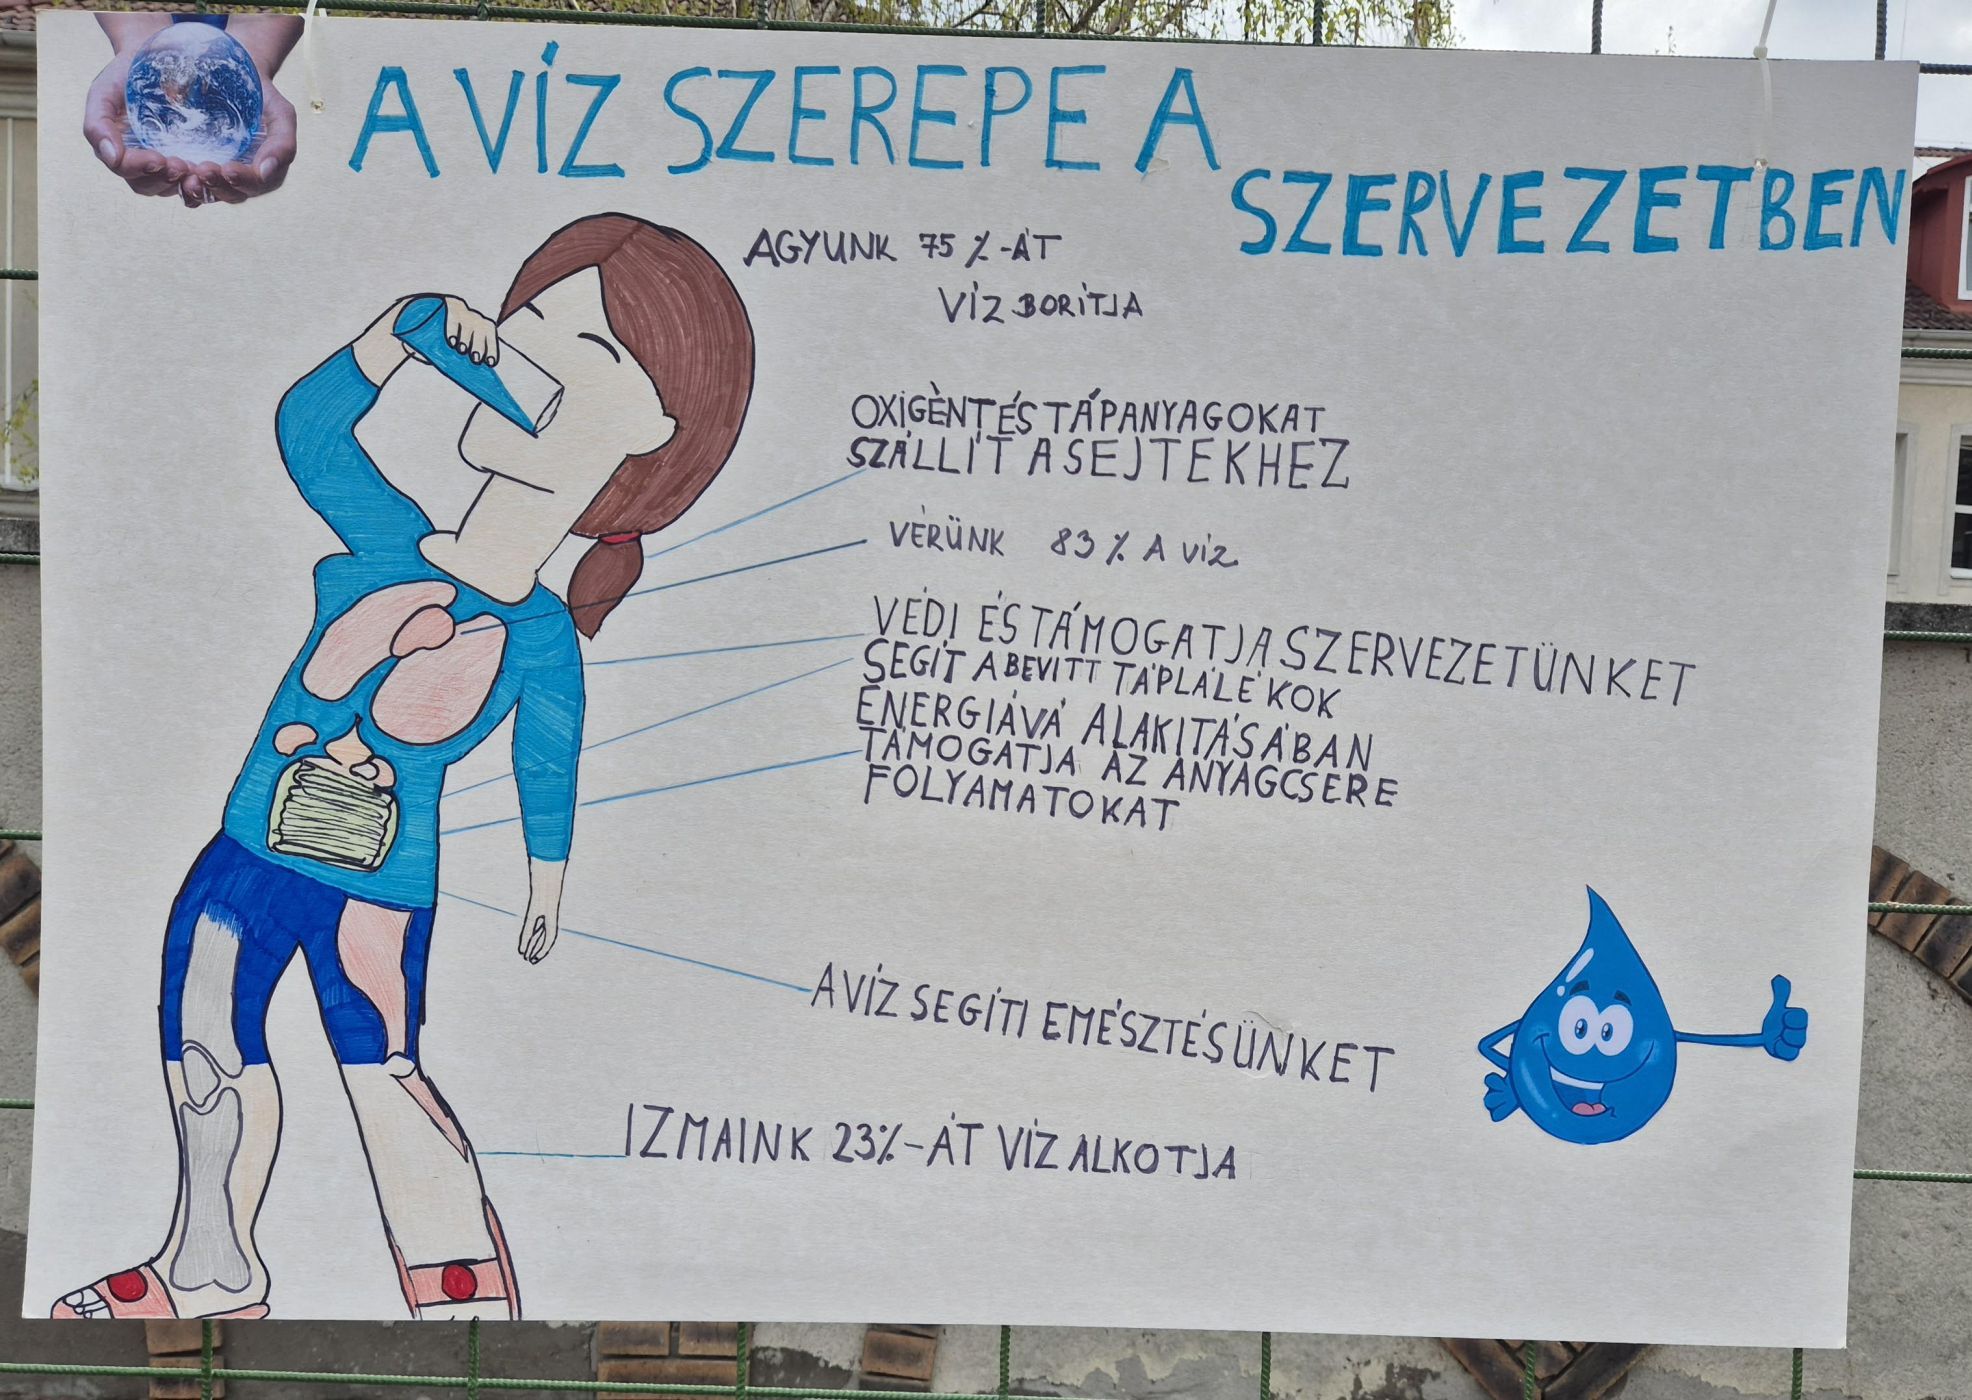 A VÍZ SZEREPE A
SZERVEZETBEN
AGYUNK 75 %-ÁT
VÍZ BORÍTJA
OXIGÈNT ÉS TÁPANYAGOKAT
SZÁLLÍT A SEJTEKHEZ
VÉRÜNK 83 % A VÍZ
VÉDI ÉS TÁMOGATJA SZERVEZETÜNKET
SEGÍT A BEVITT TÁPLÁLÉKOK
ENERGIÁVÁ ALAKITÁSÁBAN
TÁMOGATJA AZ ANYAGCSERE
FOLYAMATOKAT
A VÍZ SEGÍTI EMÉSZTÉSÜNKET
IZMAINK 23%-ÁT VÍZ ALKOTJA